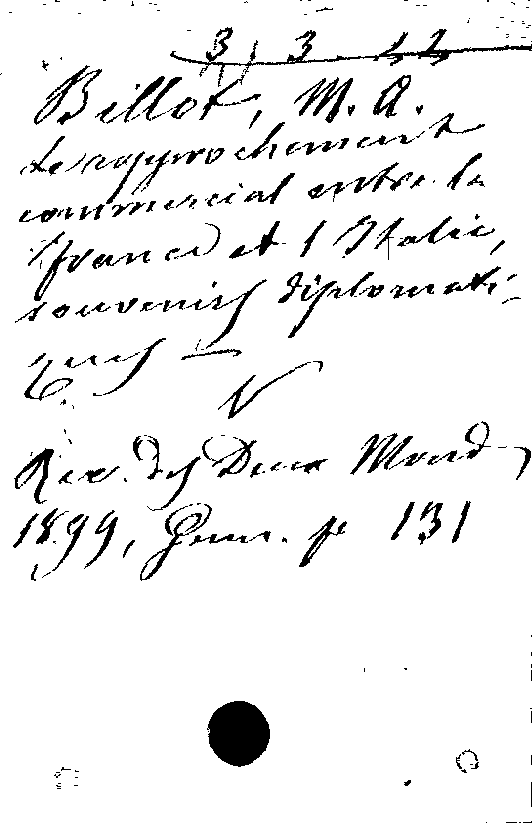 3 3 42
Billot, M. A.
Le rapprochement
commercial entre la
france et l'Italie,
souvenirs diplomati-
ques —
V
Rev. des Deux Mond,
1899, Janv. p 131